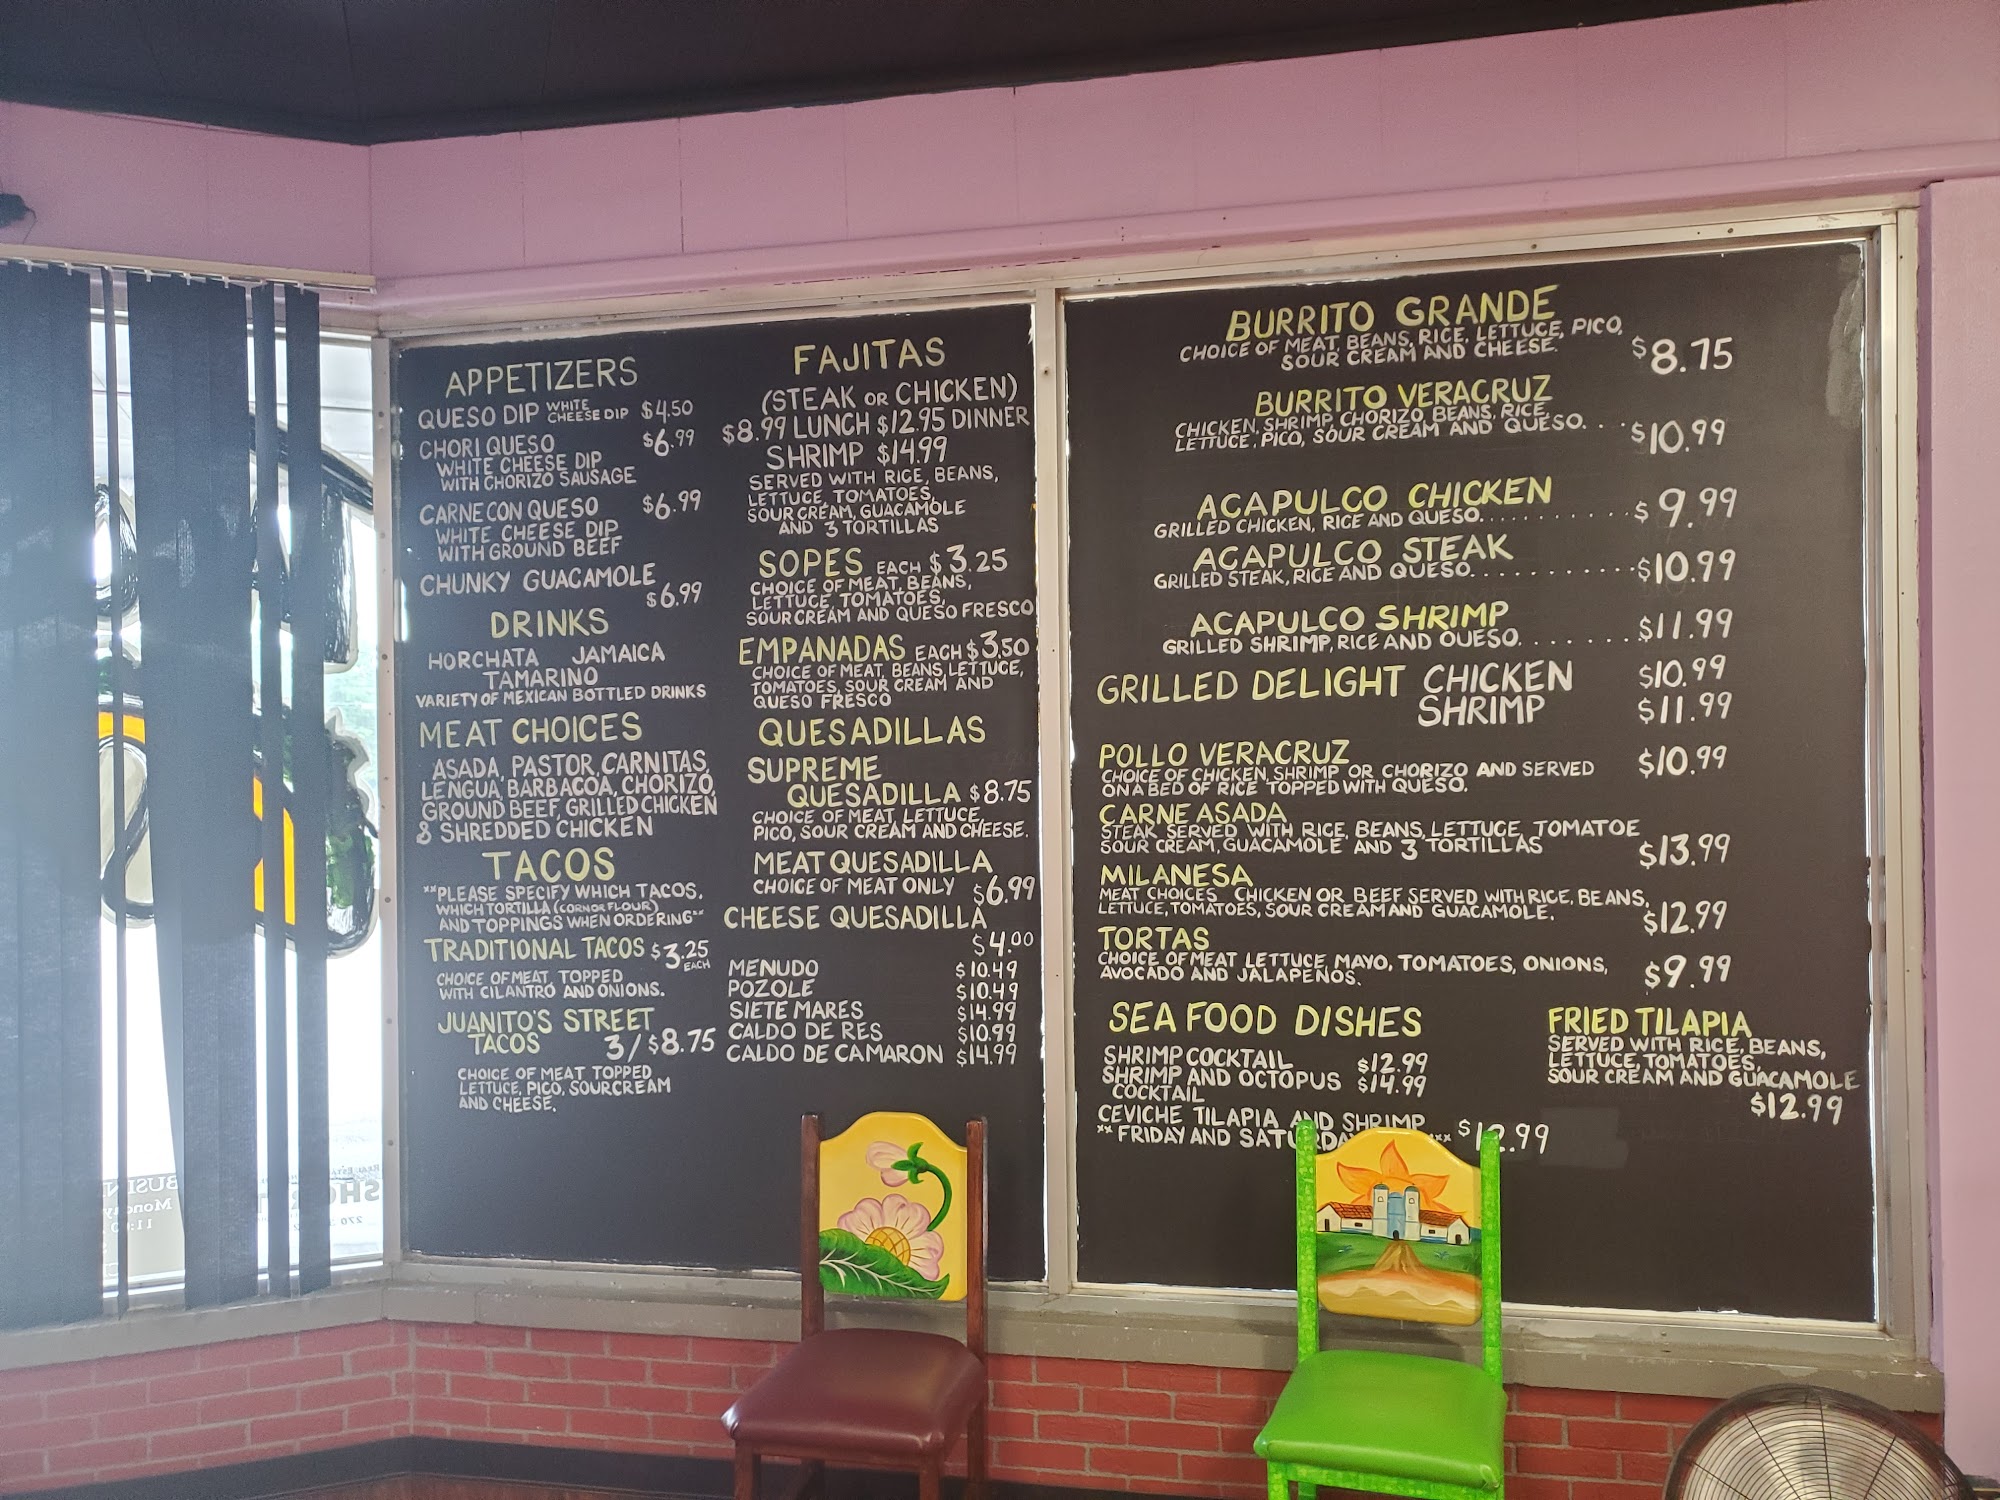 APPETIZERS
QUESO DIP WHITE CHEESE DIP $4.50
CHORI QUESO $6.99
WHITE CHEESE DIP
WITH CHORIZO SAUSAGE
CARNE CON QUESO $6.99
WHITE CHEESE DIP
WITH GROUND BEEF
CHUNKY GUACAMOLE
$6.99
DRINKS
HORCHATA JAMAICA
TAMARINO
VARIETY OF MEXICAN BOTTLED DRINKS
MEAT CHOICES
ASADA, PASTOR, CARNITAS,
LENGUA, BARBACOA, CHORIZO,
GROUND BEEF, GRILLED CHICKEN
& SHREDDED CHICKEN
TACOS
**PLEASE SPECIFY WHICH TACOS,
WHICH TORTILLA (CORN OR FLOUR)
AND TOPPINGS WHEN ORDERING**
TRADITIONAL TACOS $3.25 EACH
CHOICE OF MEAT TOPPED
WITH CILANTRO AND ONIONS.
JUANITO'S STREET
TACOS 3/$8.75
CHOICE OF MEAT TOPPED
LETTUCE, PICO, SOUR CREAM
AND CHEESE.
FAJITAS
(STEAK OR CHICKEN)
$8.99 LUNCH $12.95 DINNER
SHRIMP $14.99
SERVED WITH RICE, BEANS,
LETTUCE, TOMATOES,
SOUR CREAM, GUACAMOLE
AND 3 TORTILLAS
SOPES EACH $3.25
CHOICE OF MEAT, BEANS,
LETTUCE, TOMATOES,
SOUR CREAM AND QUESO FRESCO
EMPANADAS EACH $3.50
CHOICE OF MEAT, BEANS, LETTUCE,
TOMATOES, SOUR CREAM AND
QUESO FRESCO
QUESADILLAS
SUPREME
QUESADILLA $8.75
CHOICE OF MEAT, LETTUCE,
PICO, SOUR CREAM AND CHEESE.
MEAT QUESADILLA
CHOICE OF MEAT ONLY $6.99
CHEESE QUESADILLA
$4.00
MENUDO $10.49
POZOLE $10.49
SIETE MARES $14.99
CALDO DE RES $10.99
CALDO DE CAMARON $14.99
BURRITO GRANDE
CHOICE OF MEAT, BEANS, RICE, LETTUCE, PICO,
SOUR CREAM AND CHEESE. $8.75
BURRITO VERACRUZ
CHICKEN, SHRIMP, CHORIZO, BEANS, RICE,
LETTUCE, PICO, SOUR CREAM AND QUESO. . . $10.99
ACAPULCO CHICKEN
GRILLED CHICKEN, RICE AND QUESO. . . . . . . . . . . $9.99
ACAPULCO STEAK
GRILLED STEAK, RICE AND QUESO. . . . . . . . . . . . $10.99
ACAPULCO SHRIMP
GRILLED SHRIMP, RICE AND QUESO. . . . . . . $11.99
GRILLED DELIGHT CHICKEN $10.99
SHRIMP $11.99
POLLO VERACRUZ $10.99
CHOICE OF CHICKEN, SHRIMP OR CHORIZO AND SERVED
ON A BED OF RICE TOPPED WITH QUESO.
CARNE ASADA
STEAK SERVED WITH RICE, BEANS, LETTUCE, TOMATOE
SOUR CREAM, GUACAMOLE AND 3 TORTILLAS $13.99
MILANESA
MEAT CHOICES CHICKEN OR BEEF SERVED WITH RICE, BEANS,
LETTUCE, TOMATOES, SOUR CREAM AND GUACAMOLE. $12.99
TORTAS
CHOICE OF MEAT LETTUCE, MAYO, TOMATOES, ONIONS,
AVOCADO AND JALAPEÑOS. $9.99
SEA FOOD DISHES
SHRIMP COCKTAIL $12.99
SHRIMP AND OCTOPUS $14.99
COCKTAIL
CEVICHE TILAPIA AND SHRIMP
** FRIDAY AND SATURDAY $12.99
FRIED TILAPIA
SERVED WITH RICE, BEANS,
LETTUCE, TOMATOES,
SOUR CREAM AND GUACAMOLE
$12.99